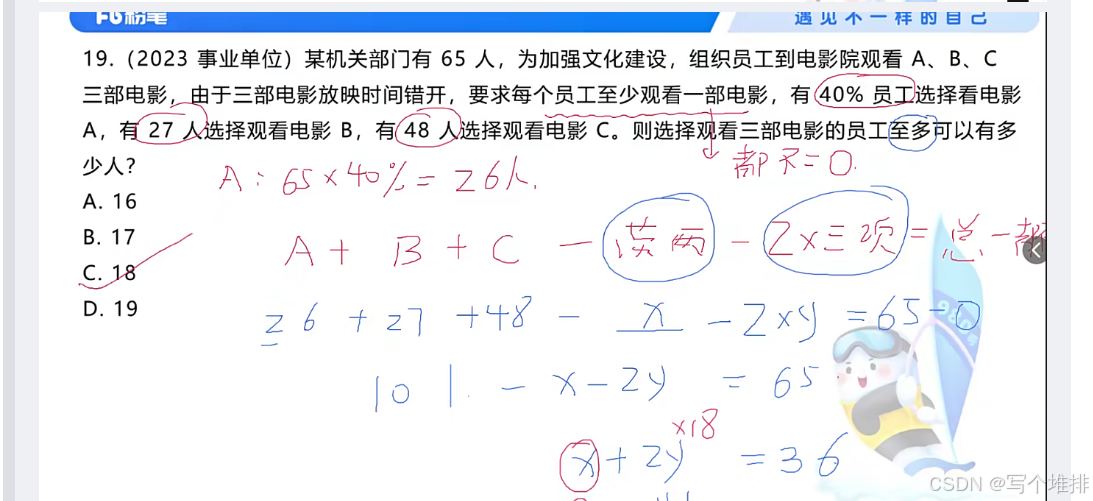 粉笔
遇见不一样的自己
19.（2023 事业单位）某机关部门有 65 人，为加强文化建设，组织员工到电影院观看 A、B、C
三部电影，由于三部电影放映时间错开，要求每个员工至少观看一部电影，有 40% 员工选择看电影
A，有 27 人选择观看电影 B，有 48 人选择观看电影 C。则选择观看三部电影的员工至多可以有多
少人？
都不=0.
A：65×40%=26人.
A. 16
B. 17
A + B + C - 满两 - 2×三项 = 总-都
C. 18
D. 19
26 + 27 + 48 - x - 2×y = 65-0
101 - x - 2y = 65
×18
x + 2y = 36
CSDN @写个堆排